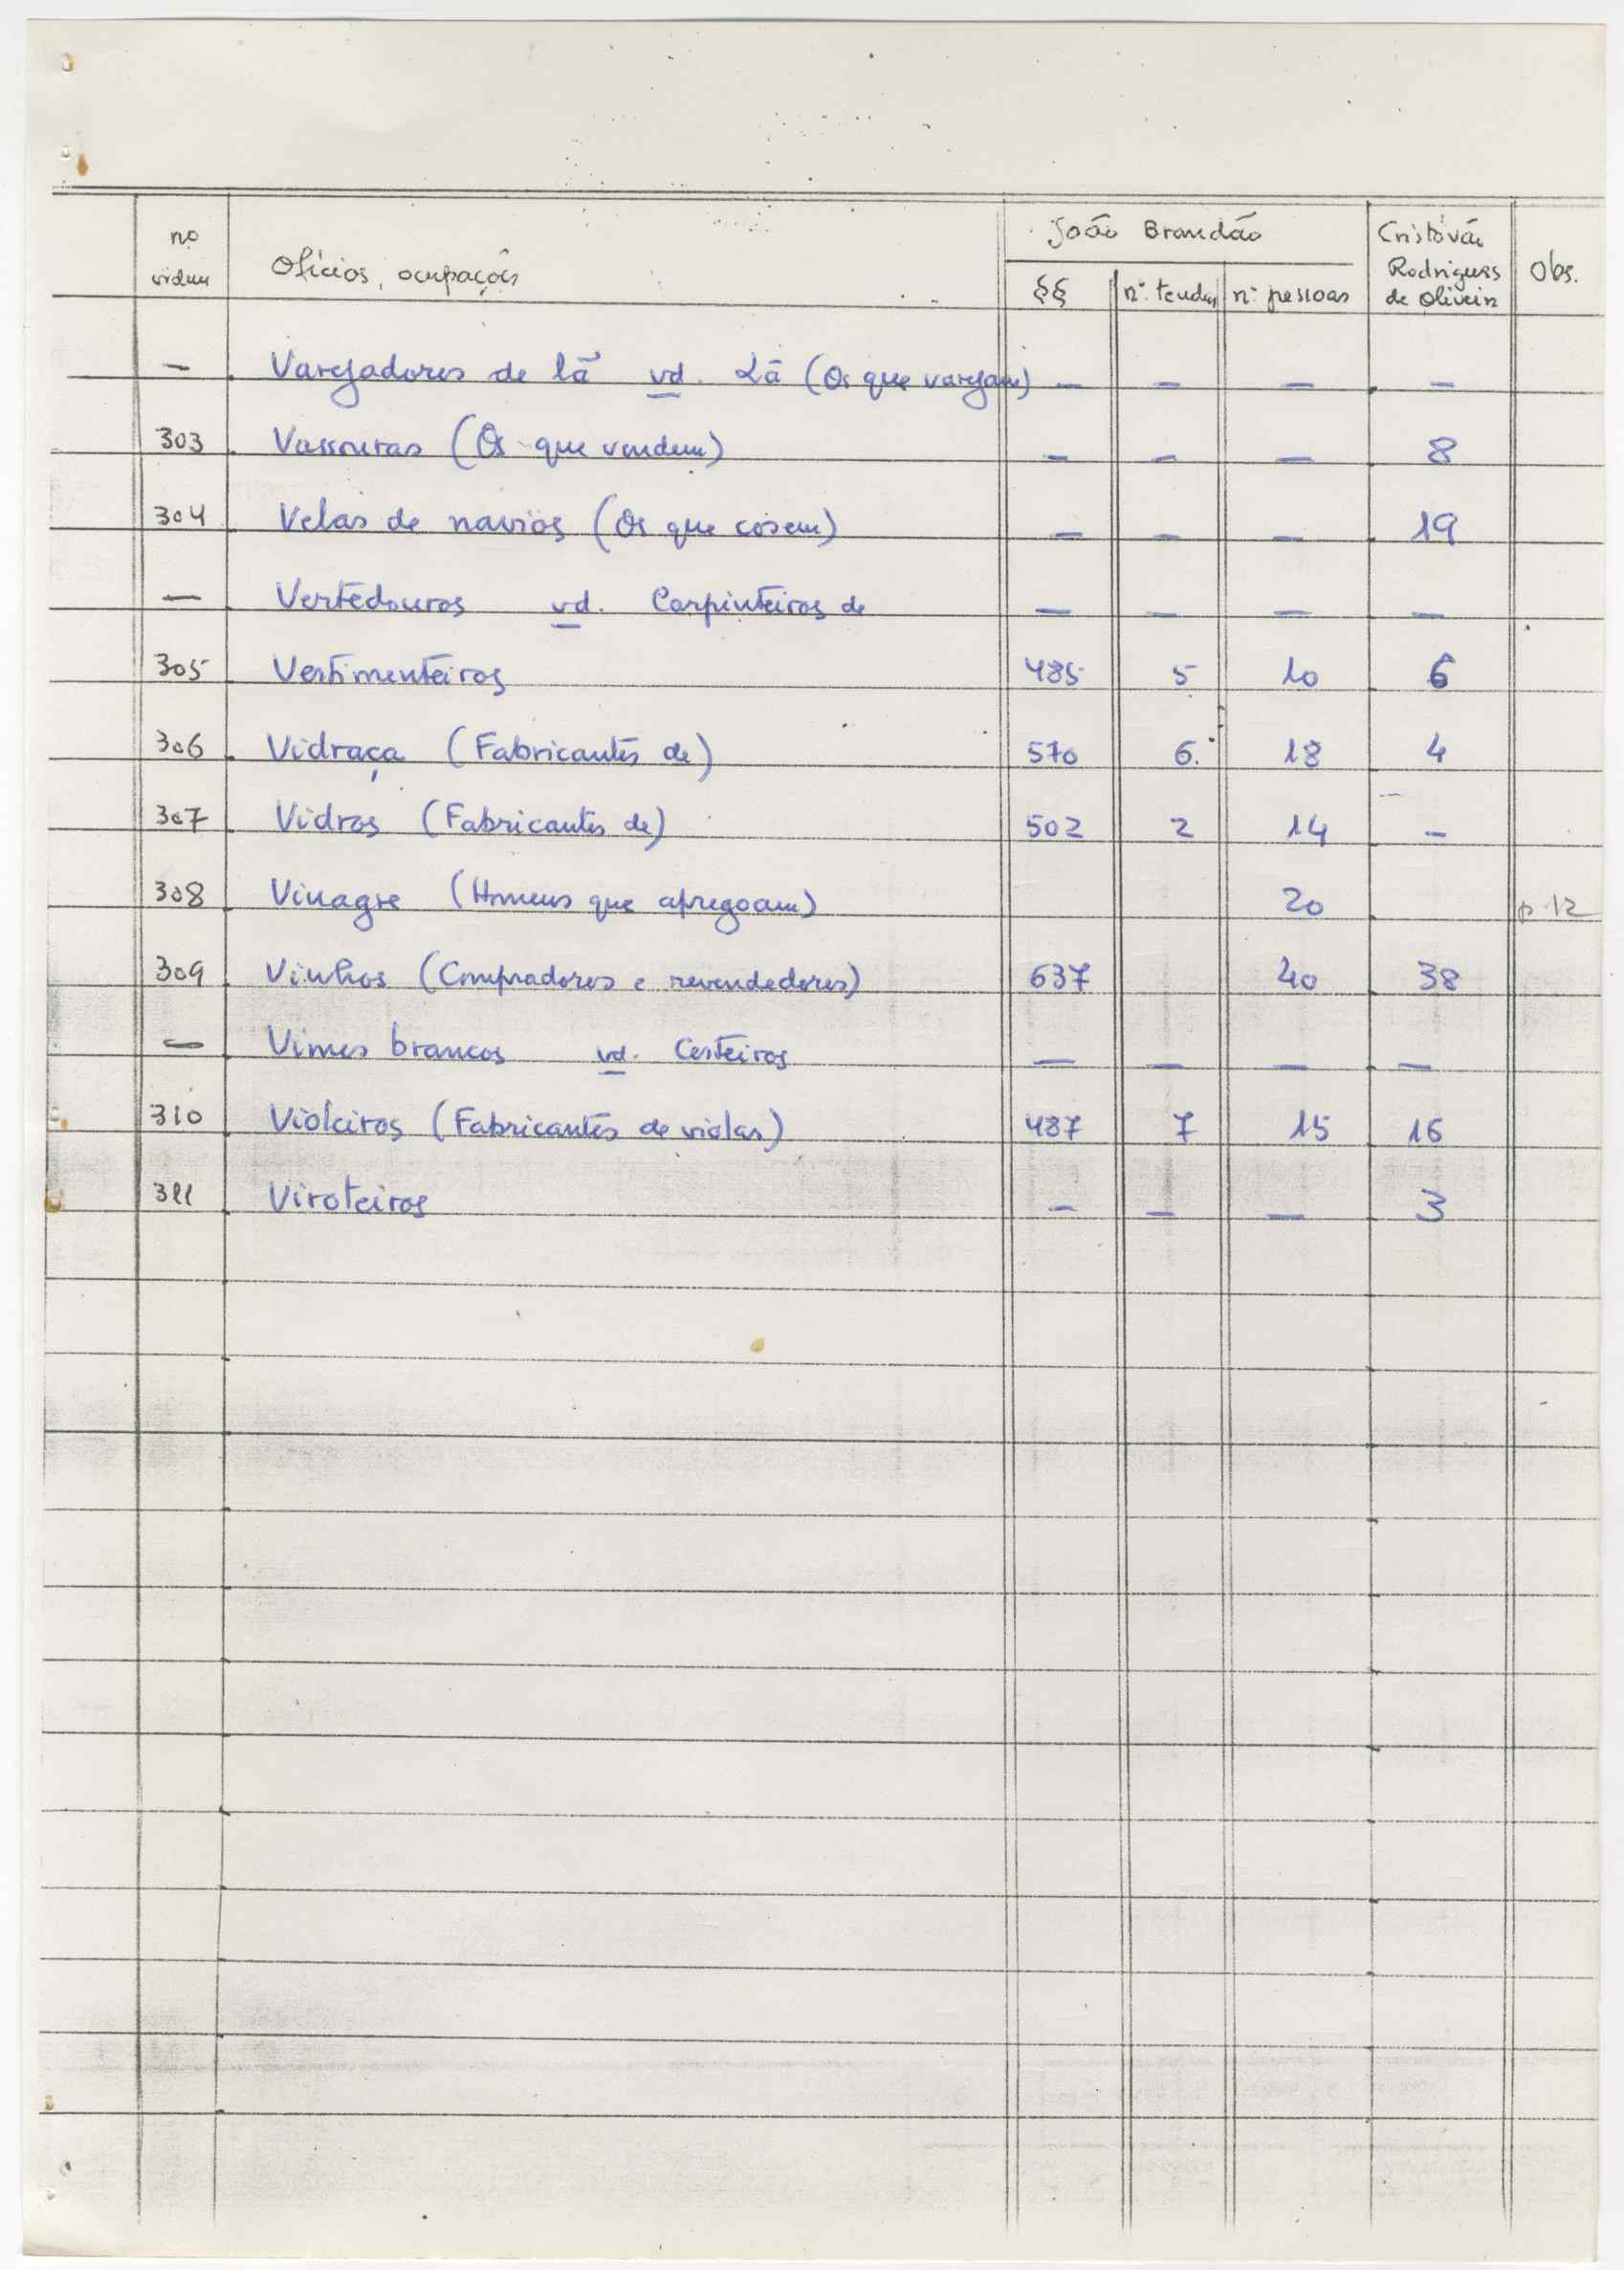 nº ordem | Ofícios, ocupações | João Brandão | Cristóvão Rodrigues de Oliveira | Obs.
§§ | nº tendas | nº pessoas
— Varejadores de lã vd. Lã (Os que varejam) — — — —
303 Vassouras (Os que vendem) — — — 8
304 Velas de navios (Os que cosem) — — — 19
— Vertedouros vd. Carpinteiros de — — — —
305 Vestimenteiros 485 5 10 6
306 Vidraça (Fabricantes de) 570 6 18 4
307 Vidros (Fabricantes de) 502 2 14 —
308 Vinagre (Homens que apregoam) 20 p. 12
309 Vinhos (Compradores e revendedores) 637 40 38
— Vimes brancos vd. Cesteiros — — — —
310 Violeiros (Fabricantes de violas) 487 7 15 16
311 Viroteiros — — — 3